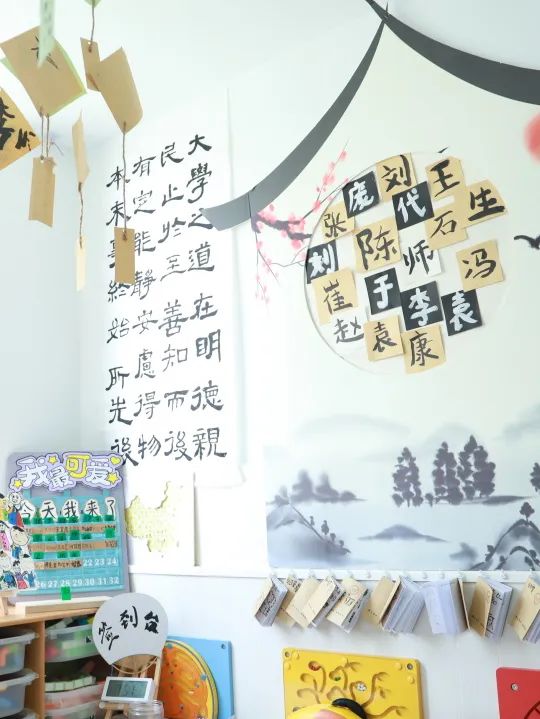 大學之道在明德親
民止於至善知而後
有定能靜安慮得物
本末事終始所先後
张庞刘王
代石生
刘陈师冯
崔于李袁
赵袁康
我最可爱
今天我来了
22 23 24
26 27 28 29 30 31 32
到